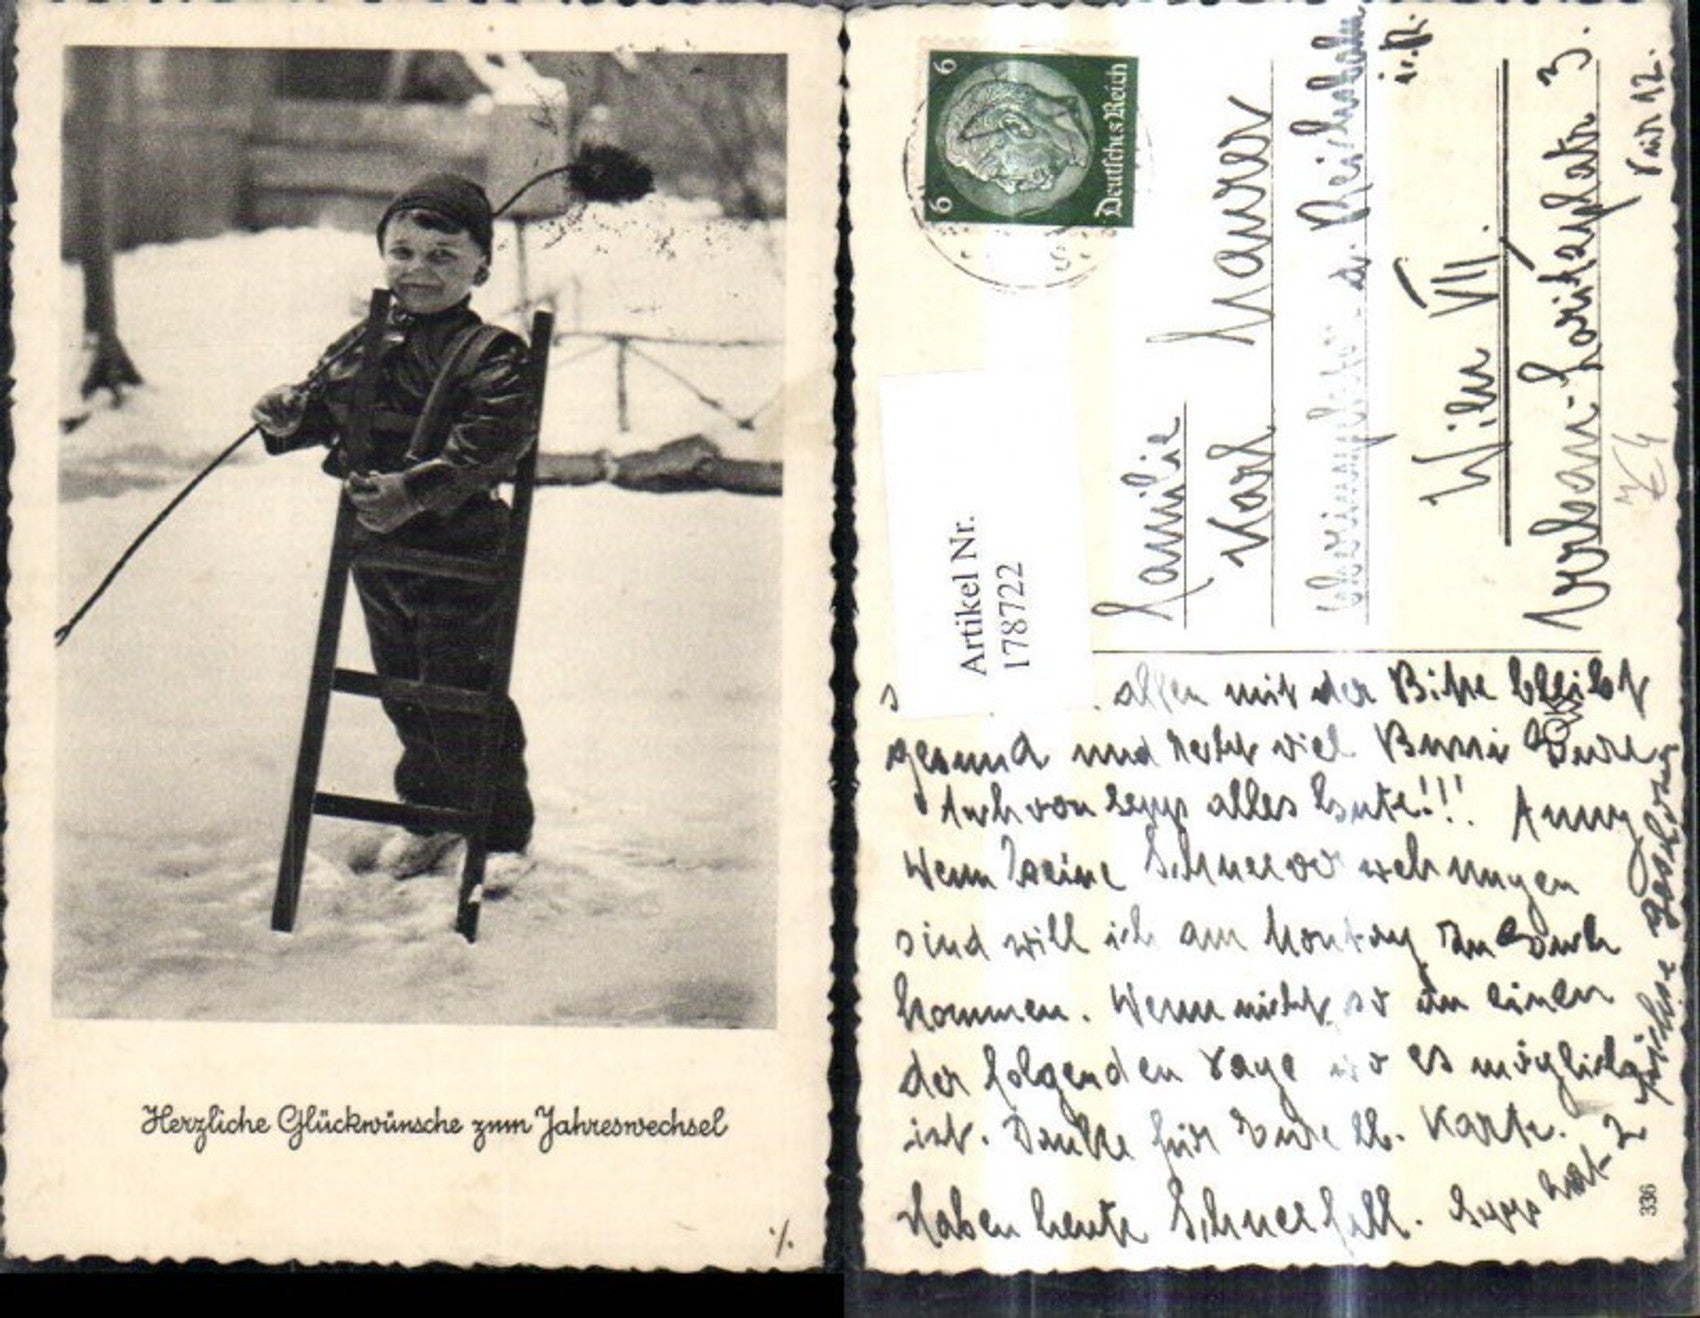 Herzliche Glückwünsche zum Jahreswechsel
6
6
Deutsches Reich
S.
Artikel Nr.
178722
Familie
Karl Maurer
d. Reichsbahn
i. R.
Wien VII.
Urban-Loritzplatz 3.
Tür 12.
allen mit der Bitte bleibt
gesund und recht viel Bussi Eure
Auch von Sepp alles Gute!!! Anny
Wenn keine Schneeverwehungen
sind will ich am Montag zu Euch
kommen. Wenn nicht, so an einen
der folgenden Tage wo es möglich
ist. Danke für Eure lb. Karte.
Haben heute Schneefall. Sepp hat 2
336